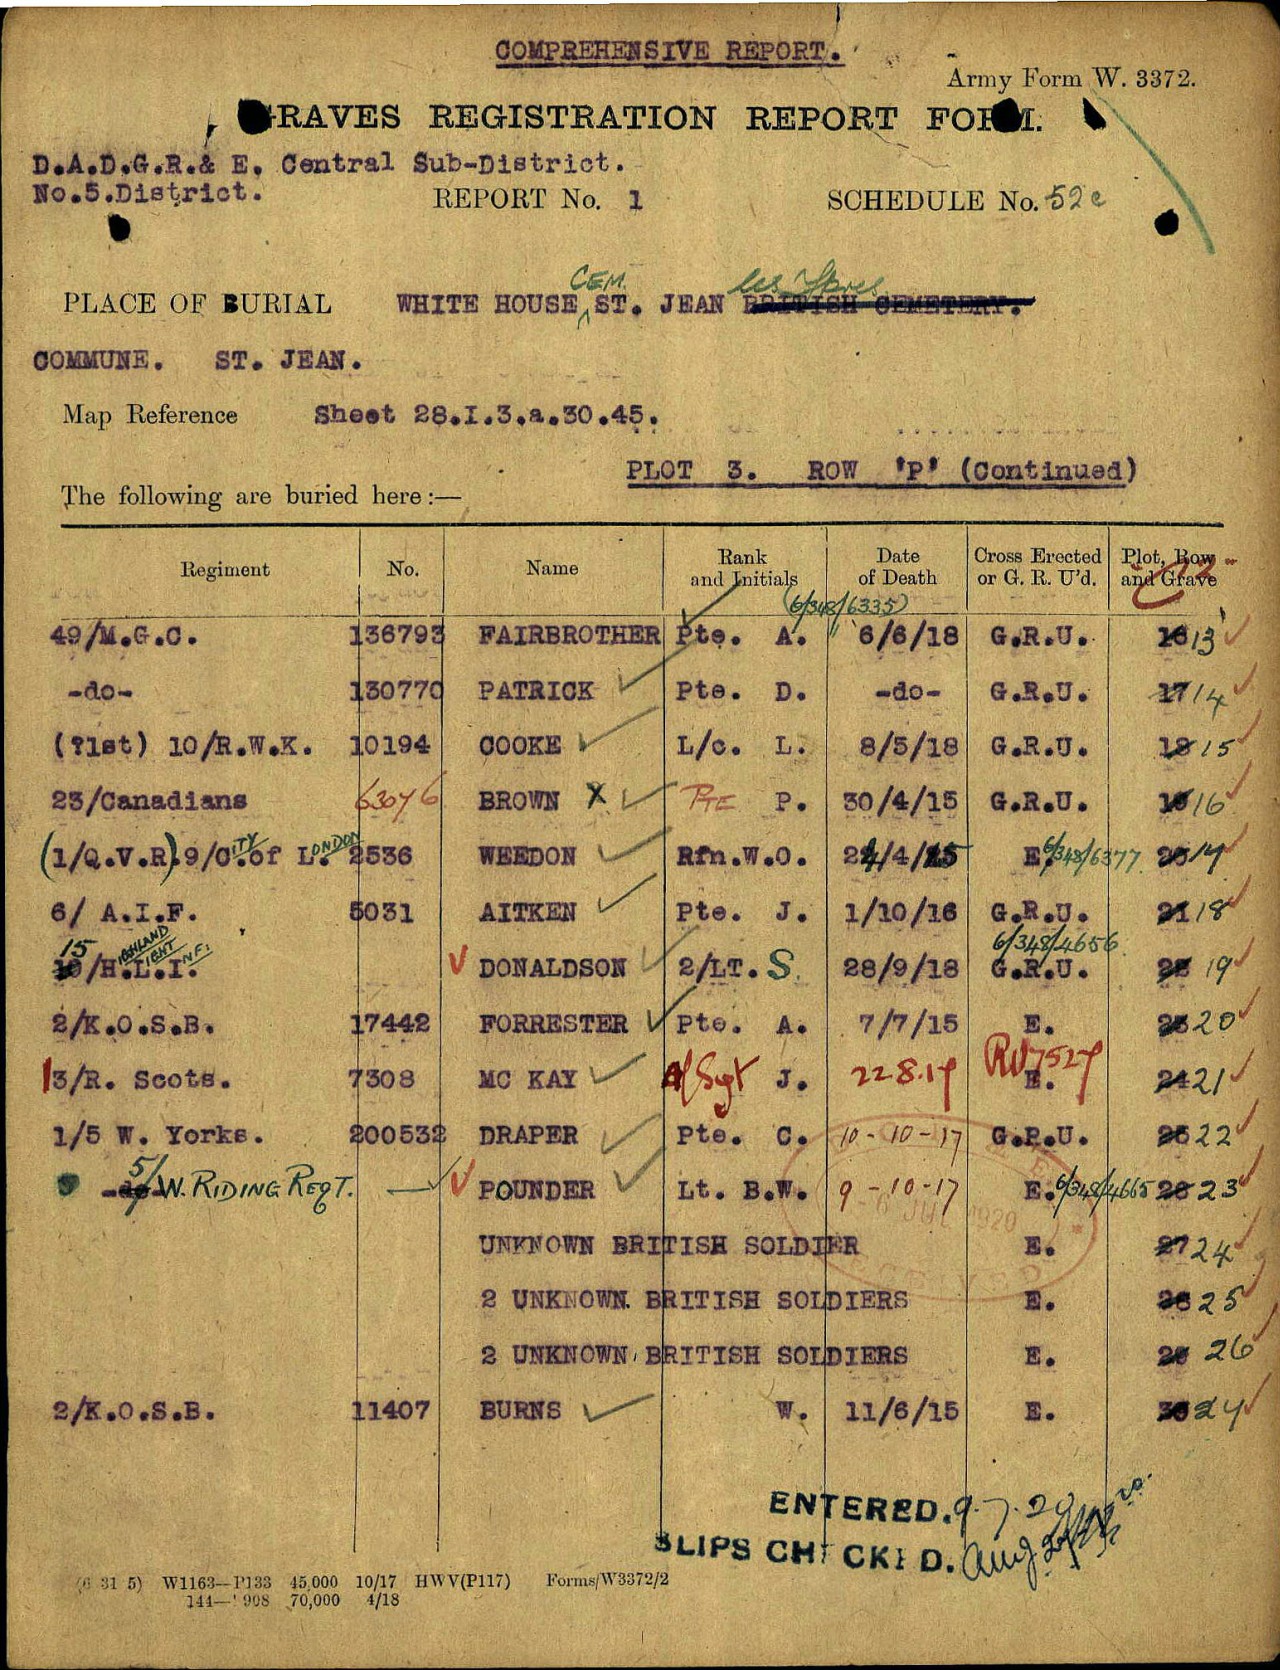 COMPREHENSIVE REPORT.
Army Form W. 3372.
GRAVES REGISTRATION REPORT FORM.
D.A.D.G.R.& E. Central Sub-District.
No.5.District. REPORT No. 1 SCHEDULE No. 52c
CEM. les Ypres
PLACE OF BURIAL WHITE HOUSE ST. JEAN BRITISH CEMETERY.
COMMUNE. ST. JEAN.
Map Reference Sheet 28.I.3.a.30.45.
PLOT 3. ROW 'P' (Continued)
The following are buried here:—
Regiment No. Name Rank and Initials Date of Death Cross Erected or G. R. U'd. Plot, Row and Grave
(6/348/6335)
49/M.G.C. 136793 FAIRBROTHER Pte. A. 6/6/18 G.R.U. 16 13
-do- 130770 PATRICK Pte. D. -do- G.R.U. 17 14
(?1st) 10/R.W.K. 10194 COOKE L/c. L. 8/5/18 G.R.U. 18 15
23/Canadians 63076 BROWN X PTE P. 30/4/15 G.R.U. 16
(1/Q.V.R) 9/CITY of LONDON 2536 WEEDON Rfn. W.O. 24/4/15 E. 6/348/6377 17
6/ A.I.F. 5031 AITKEN Pte. J. 1/10/16 G.R.U. 21 18
6/348/4656
15 /HIGHLAND LIGHT INF. DONALDSON 2/LT. S. 28/9/18 G.R.U. 19
2/K.O.S.B. 17442 FORRESTER Pte. A. 7/7/15 E. 20
13/R. Scots. 7308 MC KAY A/Sgt J. 22.8.17 E. 24 21
1/5 W. Yorks. 200532 DRAPER Pte. C. 10-10-17 G.R.U. 22
-do- 5/W. RIDING REGT. POUNDER Lt. B.W. 9-10-17 E. 6/348/4665 23
UNKNOWN BRITISH SOLDIER E. 27 24
2 UNKNOWN BRITISH SOLDIERS E. 25
2 UNKNOWN BRITISH SOLDIERS E. 26
2/K.O.S.B. 11407 BURNS W. 11/6/15 E. 30 27
ENTERED. 9.7.20
SLIPS CHECKED. Aug
(6 31 5) W1163—P133 45,000 10/17 HWV(P117) Forms/W3372/2
144— 908 70,000 4/18